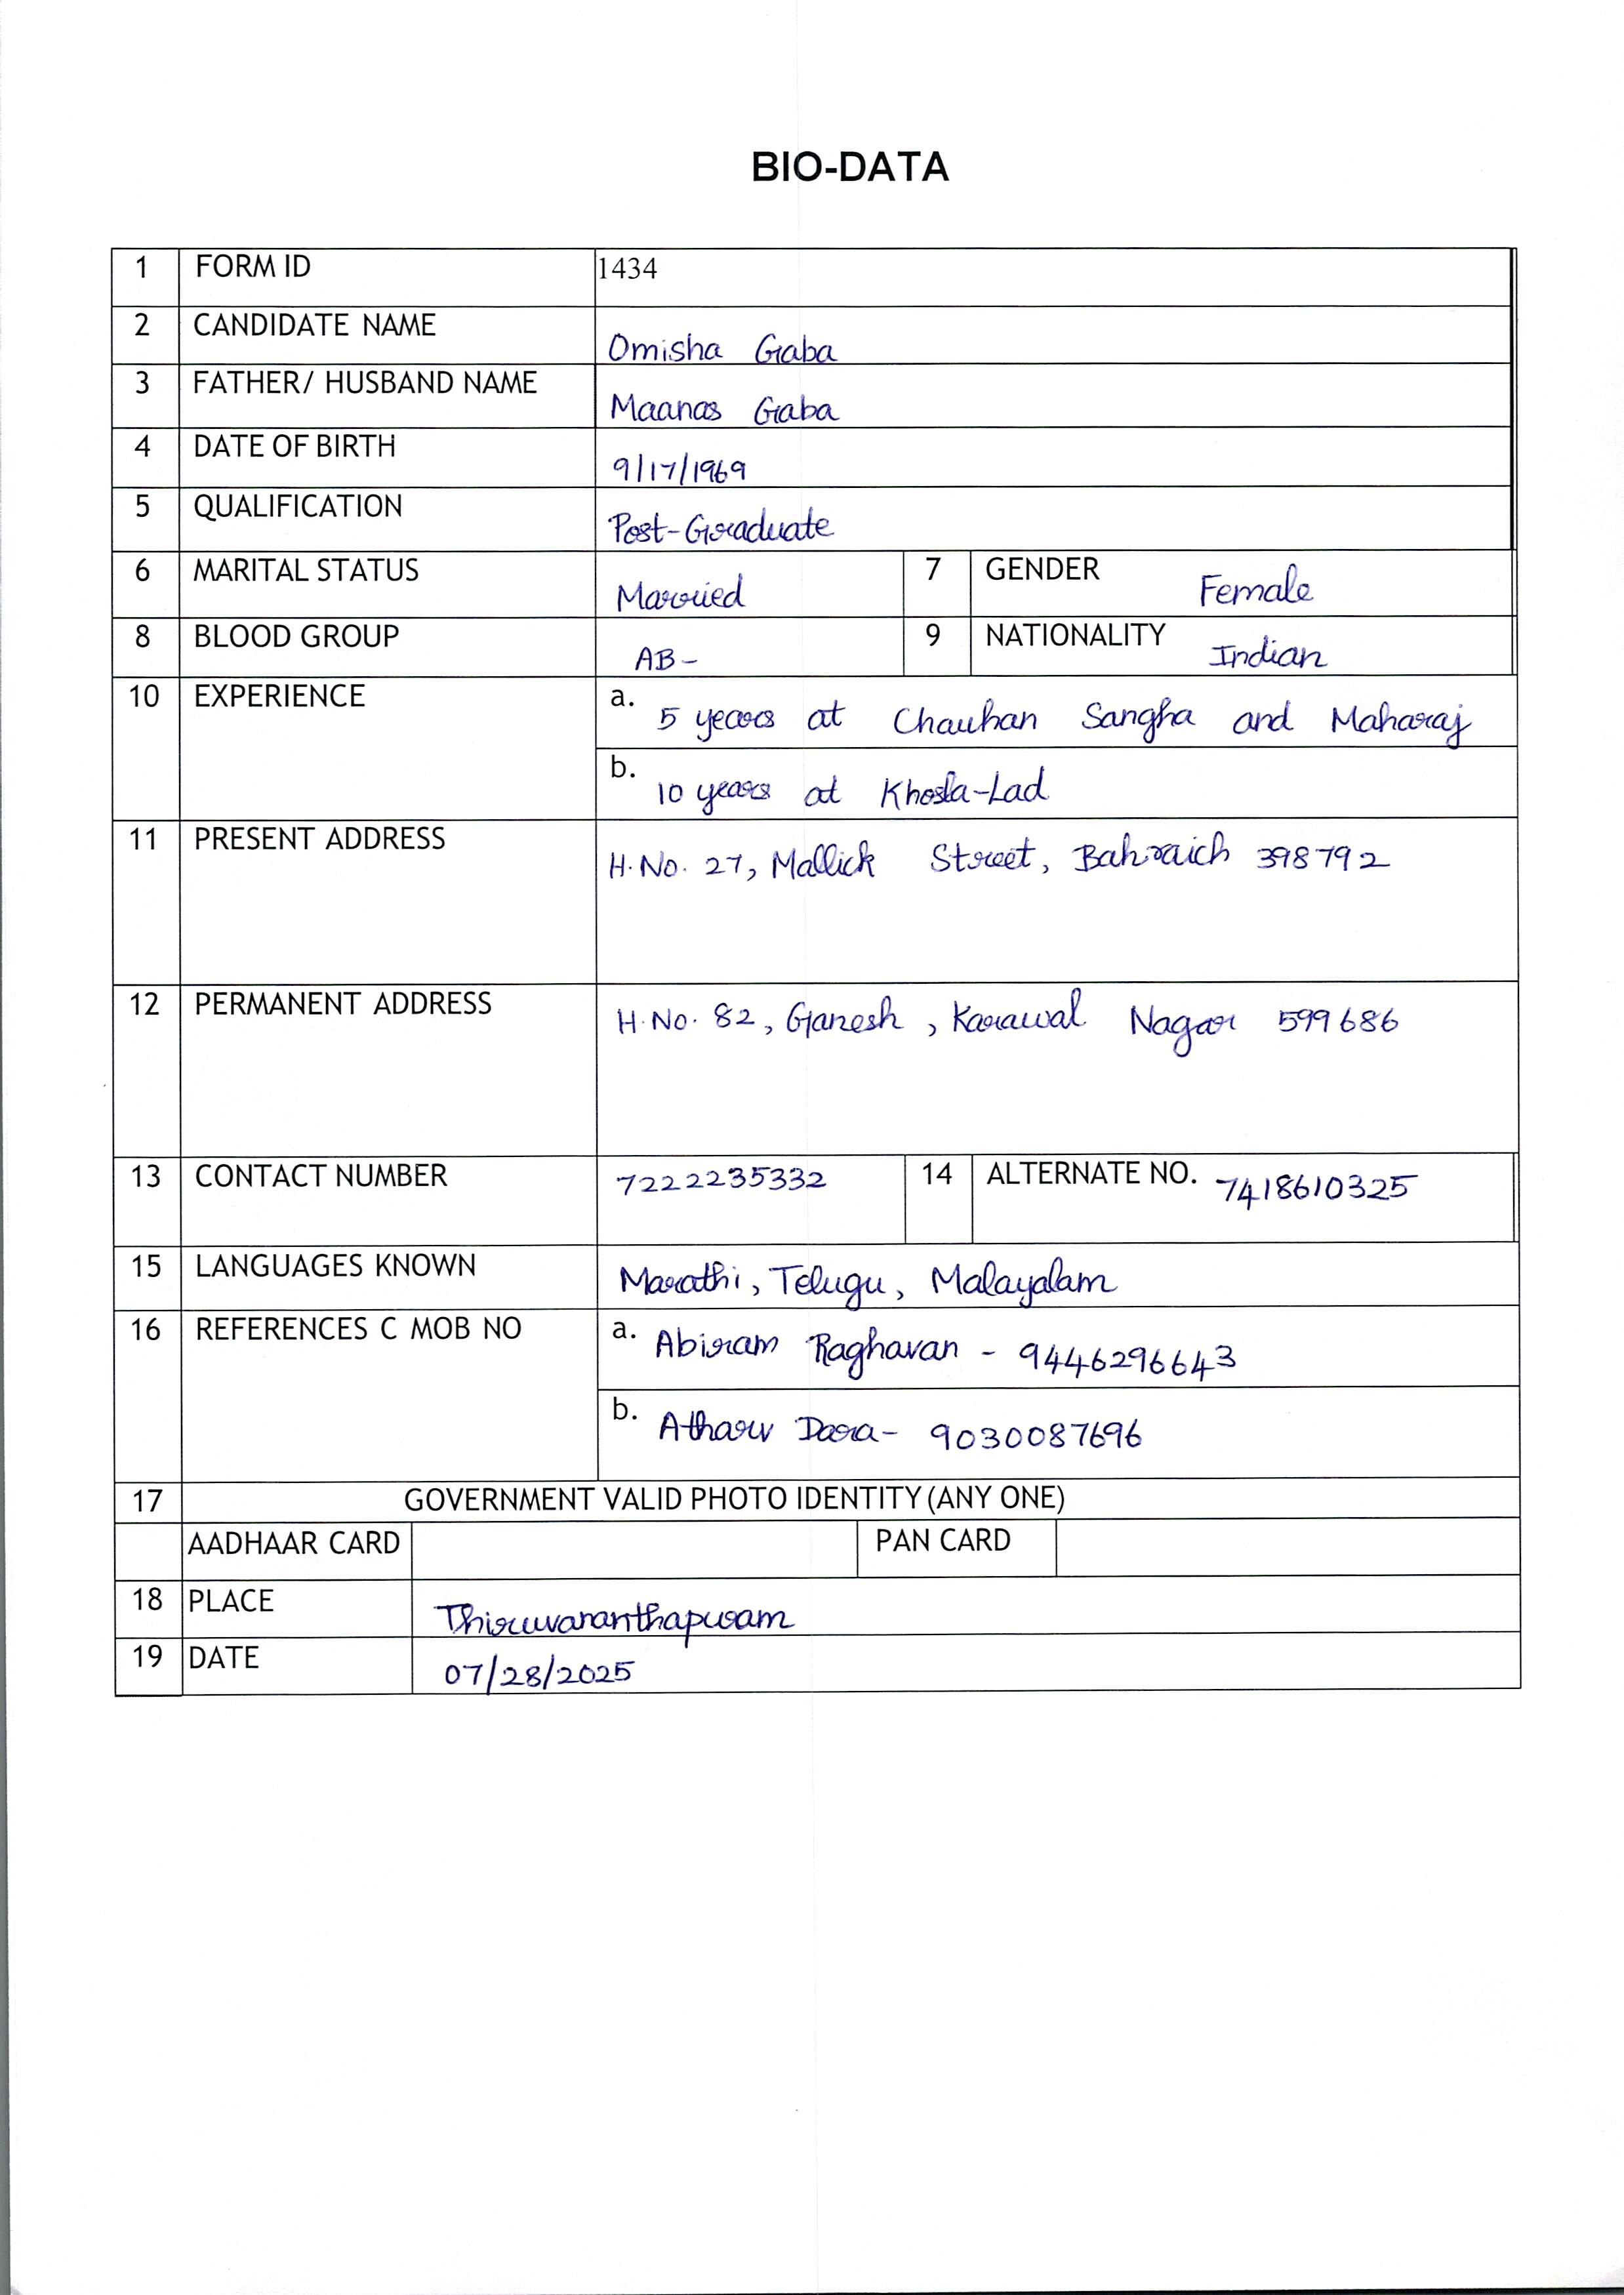 BIO-DATA
1 FORM ID 1434
2 CANDIDATE NAME Omisha Gaba
3 FATHER/ HUSBAND NAME Maanas Gaba
4 DATE OF BIRTH 9/17/1969
5 QUALIFICATION Post-Graduate
6 MARITAL STATUS Married 7 GENDER Female
8 BLOOD GROUP AB- 9 NATIONALITY Indian
10 EXPERIENCE a. 5 years at Chauhan Sangha and Maharaj
b. 10 years at Khosla-Lad
11 PRESENT ADDRESS H.No. 27, Mallick Street, Bahraich 398792
12 PERMANENT ADDRESS H.No. 82, Ganesh, Karawal Nagar 599686
13 CONTACT NUMBER 7222235332 14 ALTERNATE NO. 7418610325
15 LANGUAGES KNOWN Marathi, Telugu, Malayalam
16 REFERENCES C MOB NO a. Abiram Raghavan - 9446296643
b. Atharv Dara- 9030087696
17 GOVERNMENT VALID PHOTO IDENTITY (ANY ONE)
AADHAAR CARD PAN CARD
18 PLACE Thiruvananthapuram
19 DATE 07/28/2025